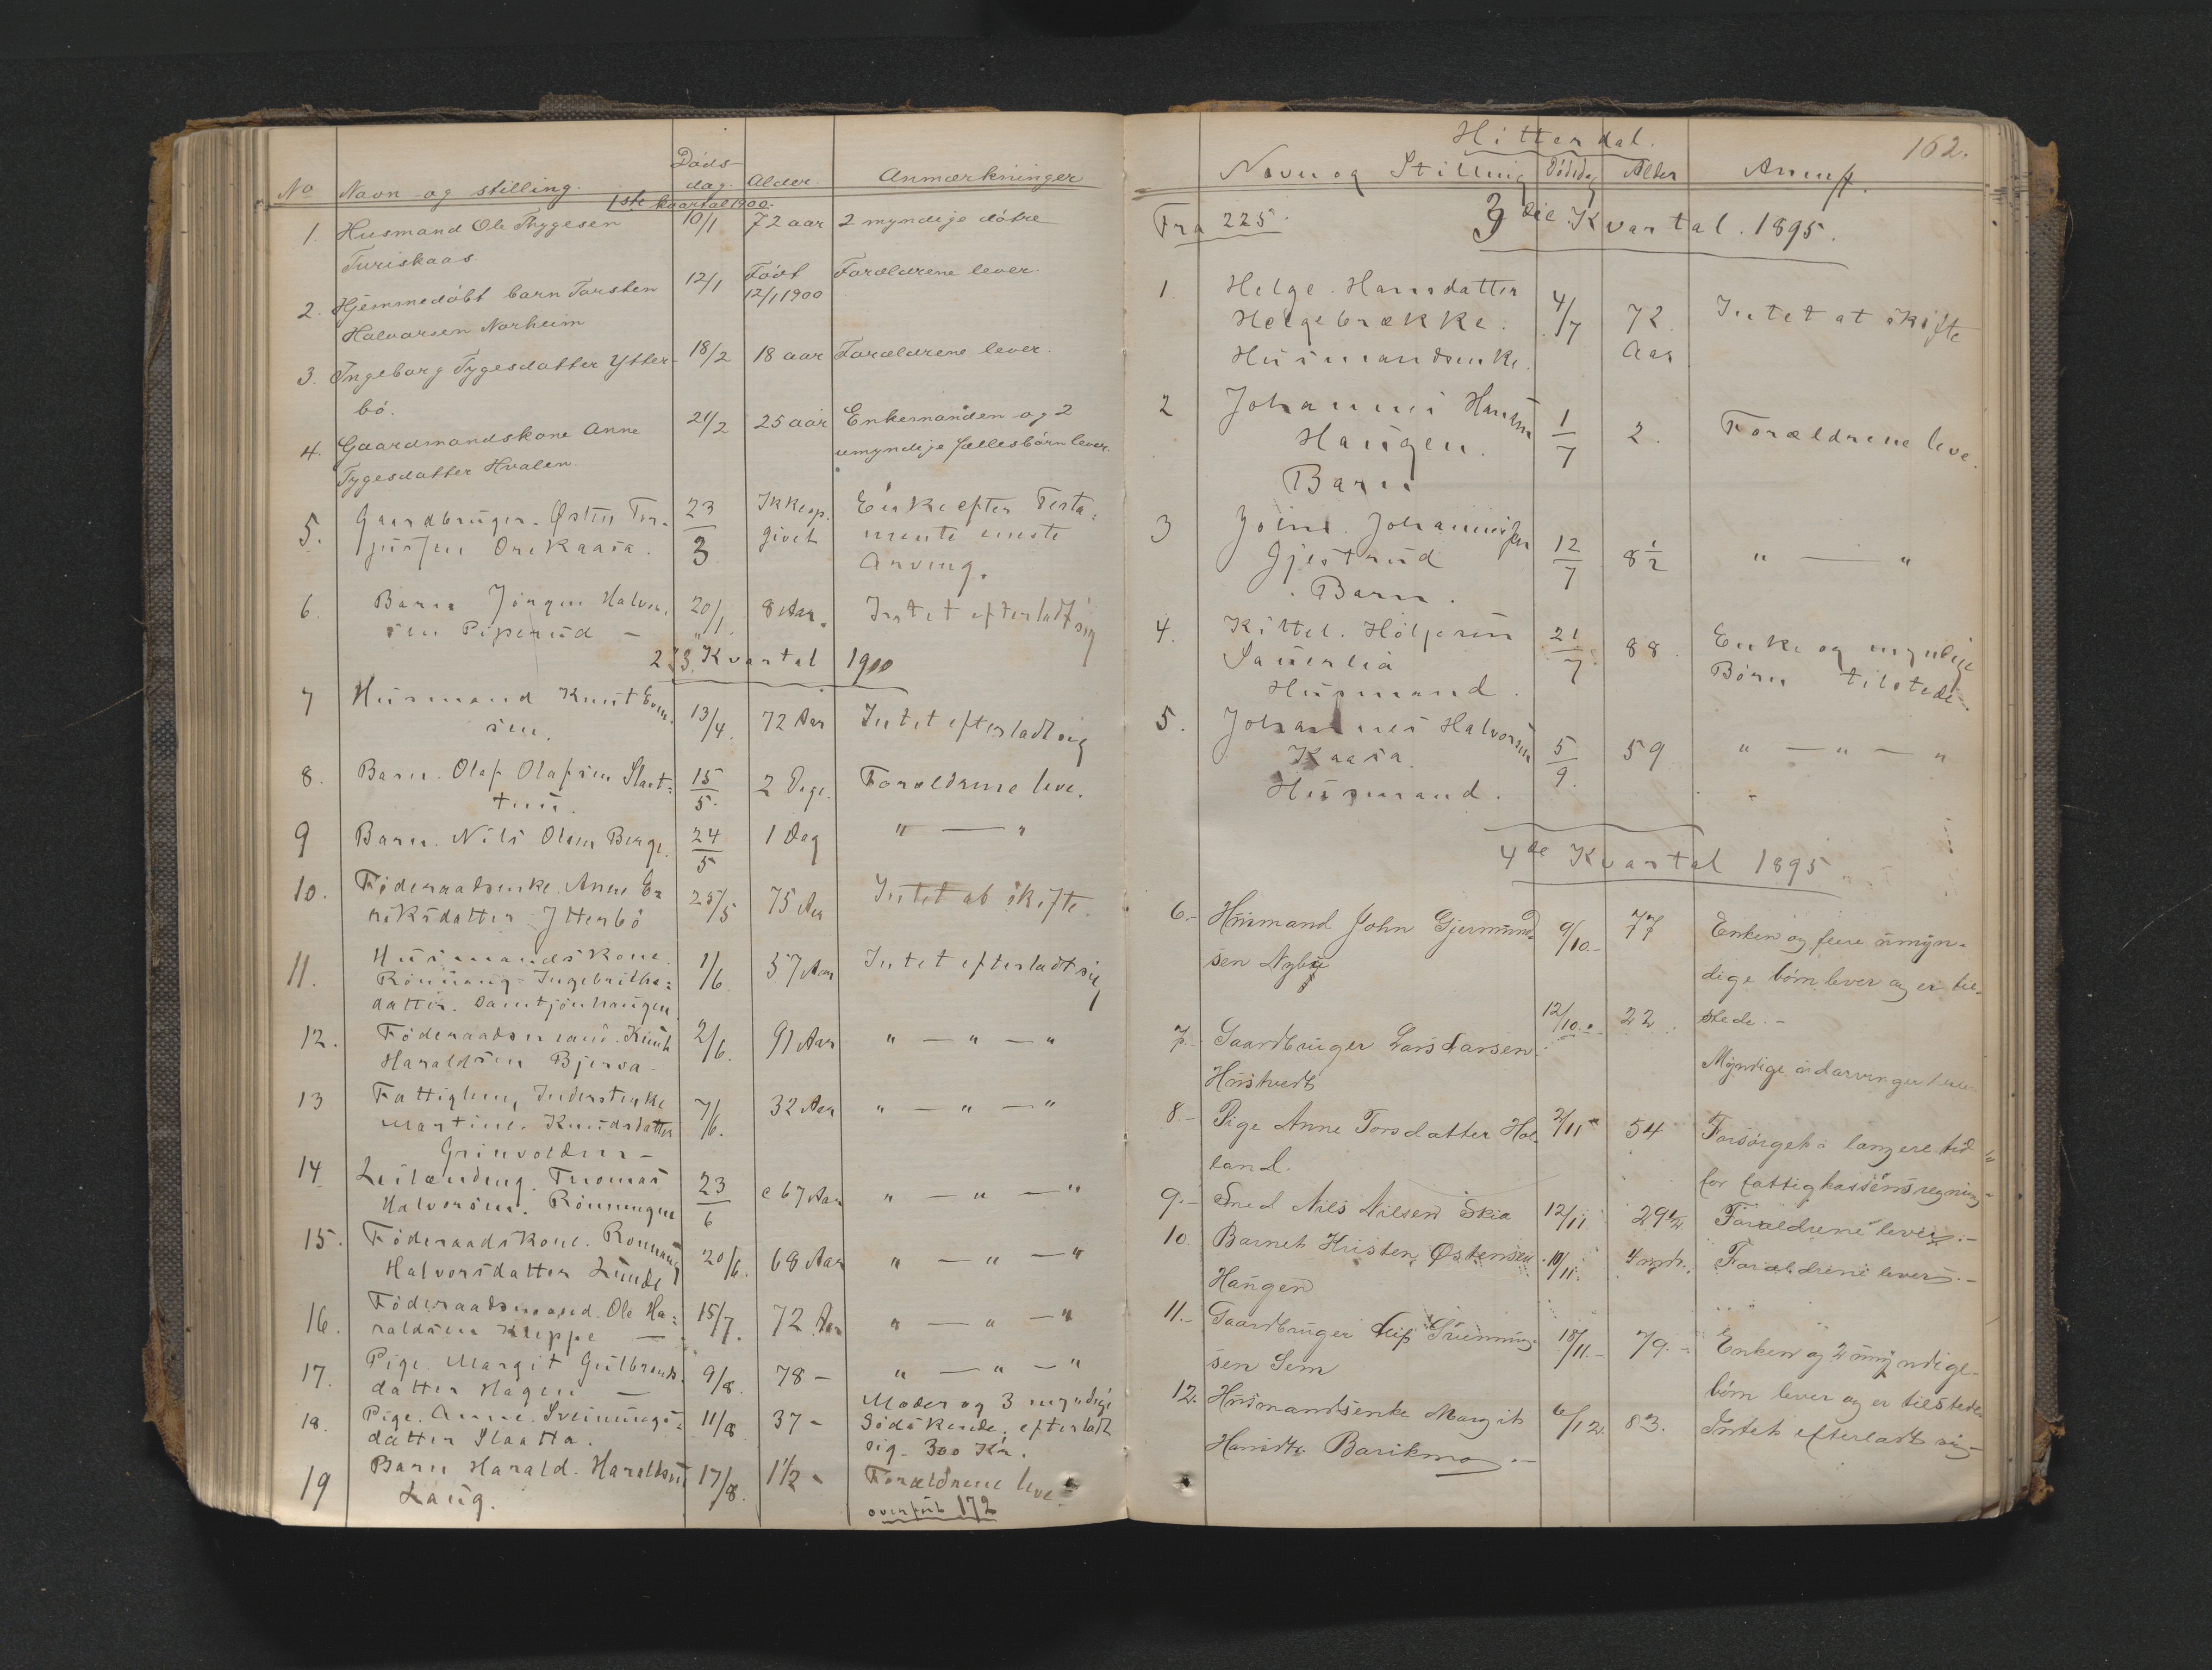 No Navn og stilling. Døds- dag. Alder. Anmærkninger
1ste kvartal 1900.
1. Husmand Ole Thygesen 10/1 72 aar 2 myndige døtre
Turiskaas.
2. Hjemmedøbt barn Torsten 12/1 Født 12/1 1900 Forældrene lever.
Halvorsen Norheim
3. Ingeborg Tygesdatter Ytter- 18/2 18 aar Forældrene lever.
bø.
4. Gaardmandskone Anne 21/2 25 aar Enkemanden og 2
Tygesdatter Hvalen. umyndige fællesbørn lever.
5. Gaardbruger Østen Tor- 23/3 Ikke op- Enke efter Testa-
jussen Orekaasa. givet mente eneste
Arving.
6. Barn Jörgen Halvor- 20/1 8 Aar. Intet efterladt sig
sen Piperud —
2 & 3 Kvartal 1900
7 Husmand Knut Even- 13/4. 72 Aar Intet efterladt sig
sen.
8. Barn. Olaf Olafsen Slaat- 15/5. 2 Dage. Foreldrene leve.
tun.
9 Barn. Nils Olsen Berge. 24/5 1 Dag " — "
10. Föderaadsenke Anne E- 25/5 75 Aar Intet at skifte.
riksdatter Ytterbö
11. Husmandskone. 1/6. 57 Aar Intet efterladt sig
Rönnaug Ingebriths-
datter. Damtjönhaugen
12. Föderaadsmand. Knut 2/6. 91 Aar " — " — "
Haraldsen Bjerva
13 Fattiglem, Inderstenke 7/6. 32 Aar " — " — "
Martine. Knudsdatter
Grinvolden —
14 Leilænding. Thomas 23/6 c 67 Aar " — " — "
Halvorsen. Rönningen
15. Föderaadskone. Ronnaug 20/6. 68 Aar " — " — "
Halvorsdatter Lunde
16. Föderaadsmand Ole Ha- 15/7. 72 Aar " — " — "
raldsen Kleppe —
17. Pige. Margit Gulbrands- 9/8. 78 — " — " — "
datter Hagen —
18. Pige. Anne. Sveinungs- 11/8 37 - Moder og 3 myndige
datter Slaatta. Södskende. efterladt
sig. 300 Kr.
19 Barn Harald. Haraldsen 17/8. 1 1/2 - Forældrene leve.
Haug.
overført 172
Hitterdal. 162.
Navn og Stilling Dödsdag Alder Anmk.
Fra 225. 3die Kvartal. 1895.
1. Helge. Hansdatter 4/7 72 Aar Intet at skifte
Helgebrække.
Husmandsenke.
2 Johannes Hansen 1/7 2. Forældrene leve.
Haugen.
Barn
3 John. Johannessen 12/7 8 1/2 " — "
Gjestrud
Barn.
4. Kittel. Höljesen 21/7 88. Enke og myndige
Sauerlia Börn tilstede.
Husmand.
5. Johannes Halvorsen 5/9. 59 " — " — "
Kaasa.
Husmand.
4de Kvartal 1895
6.- Husmand John Gjermund- 9/10.- 77 Enken og flere umyn-
sen Nybu dige børn lever og er til-
stede.-
7.- Gaardbruger Lars Larsen 12/10.- 22 Myndige udarvinger lever
Hustvedt
8.- Pige Anne Torsdatter Hol- 2/11 54 Forsørget i længere tid
land. for fattigkassens regning-
9.- Smed Nils Nilsen Skia 12/11 29 1/2 Forældrene lever.-
10. Barnet Kristen Østensen 10/11. 4 mdr. Forældrene lever.-
Haugen
11.- Gaardbruger Leif Sveinung- 18/11.- 79.- Enken og 2 myndige
sen Sem børn lever og er tilstede
12. Husmandsenke Margit 6/12. 83. Intet efterladt sig-
Hansdtr. Barikmo.-